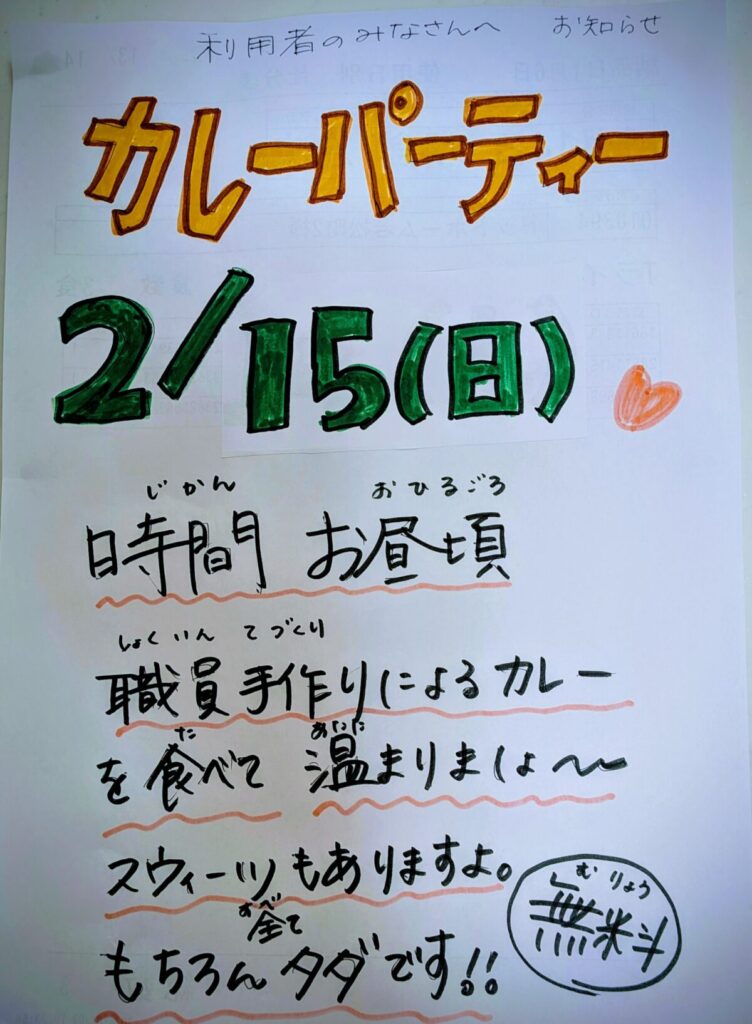 利用者のみなさんへ お知らせ
カレーパーティー
2/15(日)
じかん おひるごろ
時間 お昼頃
しょくいん てづくり
職員手作りによるカレー
た あたた
を食べて 温まりましょ～
スウィーツもありますよ。
すべ むりょう
全て 無料
もちろんタダです!!